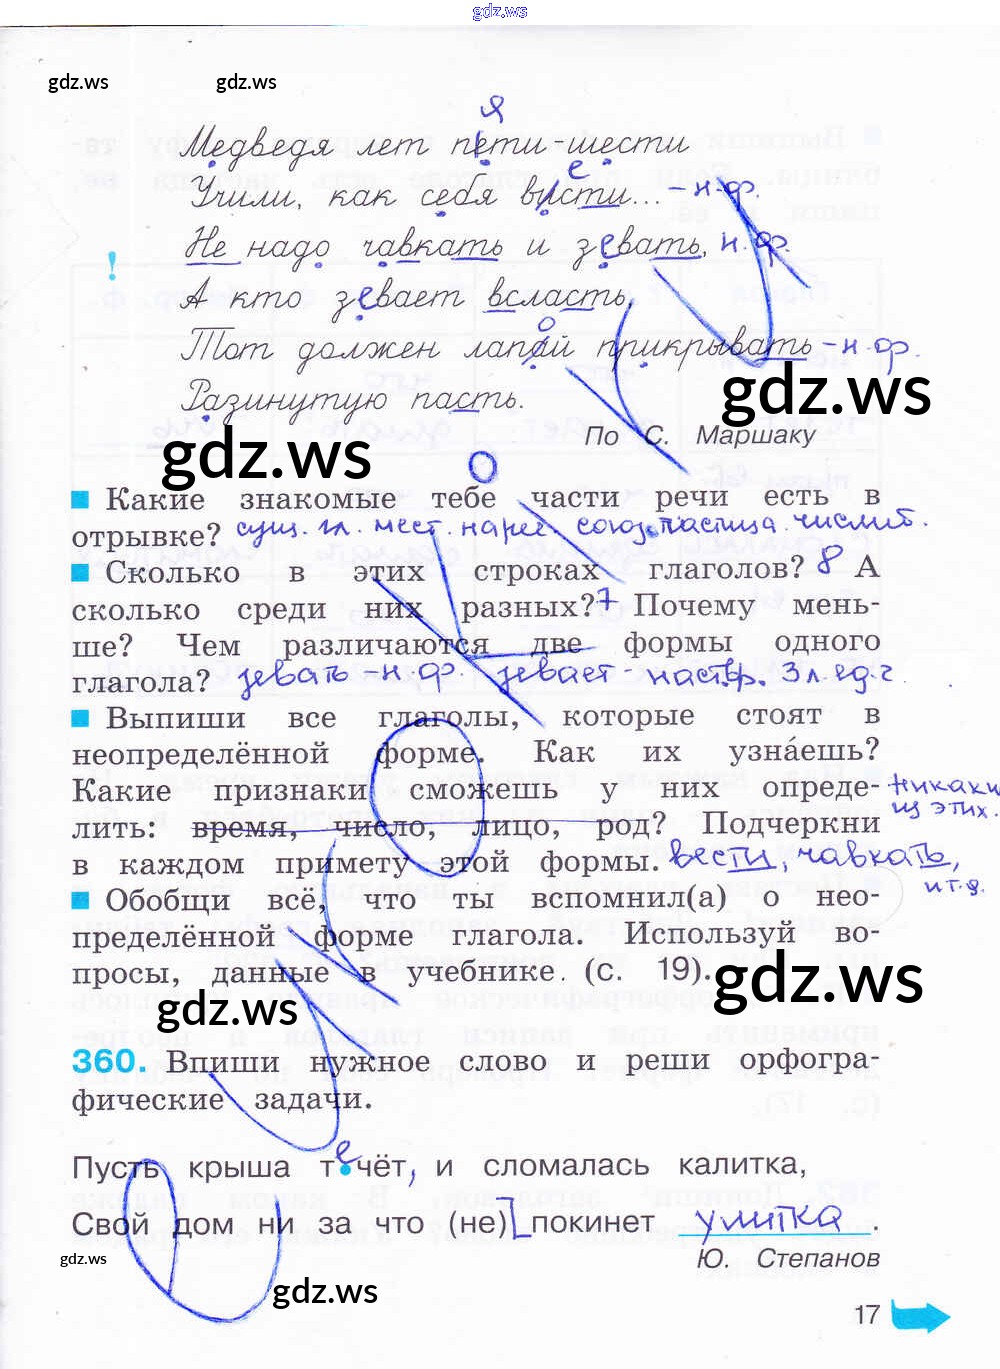 gdz.ws
gdz.ws gdz.ws
я
Медведя лет пети-шести
е
Учили, как себя висти... - н.ф.
! Не надо чавкать и зевать, н.ф.
А кто зевает всласть,
о
Тот должен лапай прикрывать - н.ф.
Разинутую пасть.
gdz.ws
По С. Маршаку
gdz.ws
Какие знакомые тебе части речи есть в
отрывке? сущ. гл. мест. нареч. союз. частица. числит.
Сколько в этих строках глаголов? 8 А
сколько среди них разных? 7 Почему мень-
ше? Чем различаются две формы одного
глагола? зевать - н.ф. зевает - наст.вр. 3 л. ед.ч
Выпиши все глаголы, которые стоят в
неопределённой форме. Как их узна́ешь?
Какие признаки сможешь у них опреде- никаких
лить: время, число, лицо, род? Подчеркни из этих.
в каждом примету этой формы. вести, чавкать,
и т.д.
Обобщи всё, что ты вспомнил(а) о нео-
пределённой форме глагола. Используй во-
просы, данные в учебнике (с. 19).
gdz.ws
gdz.ws
360. Впиши нужное слово и реши орфогра-
фические задачи.
е
Пусть крыша т.чёт, и сломалась калитка,
Свой дом ни за что (не) покинет улитка.
Ю. Степанов
gdz.ws
gdz.ws
17